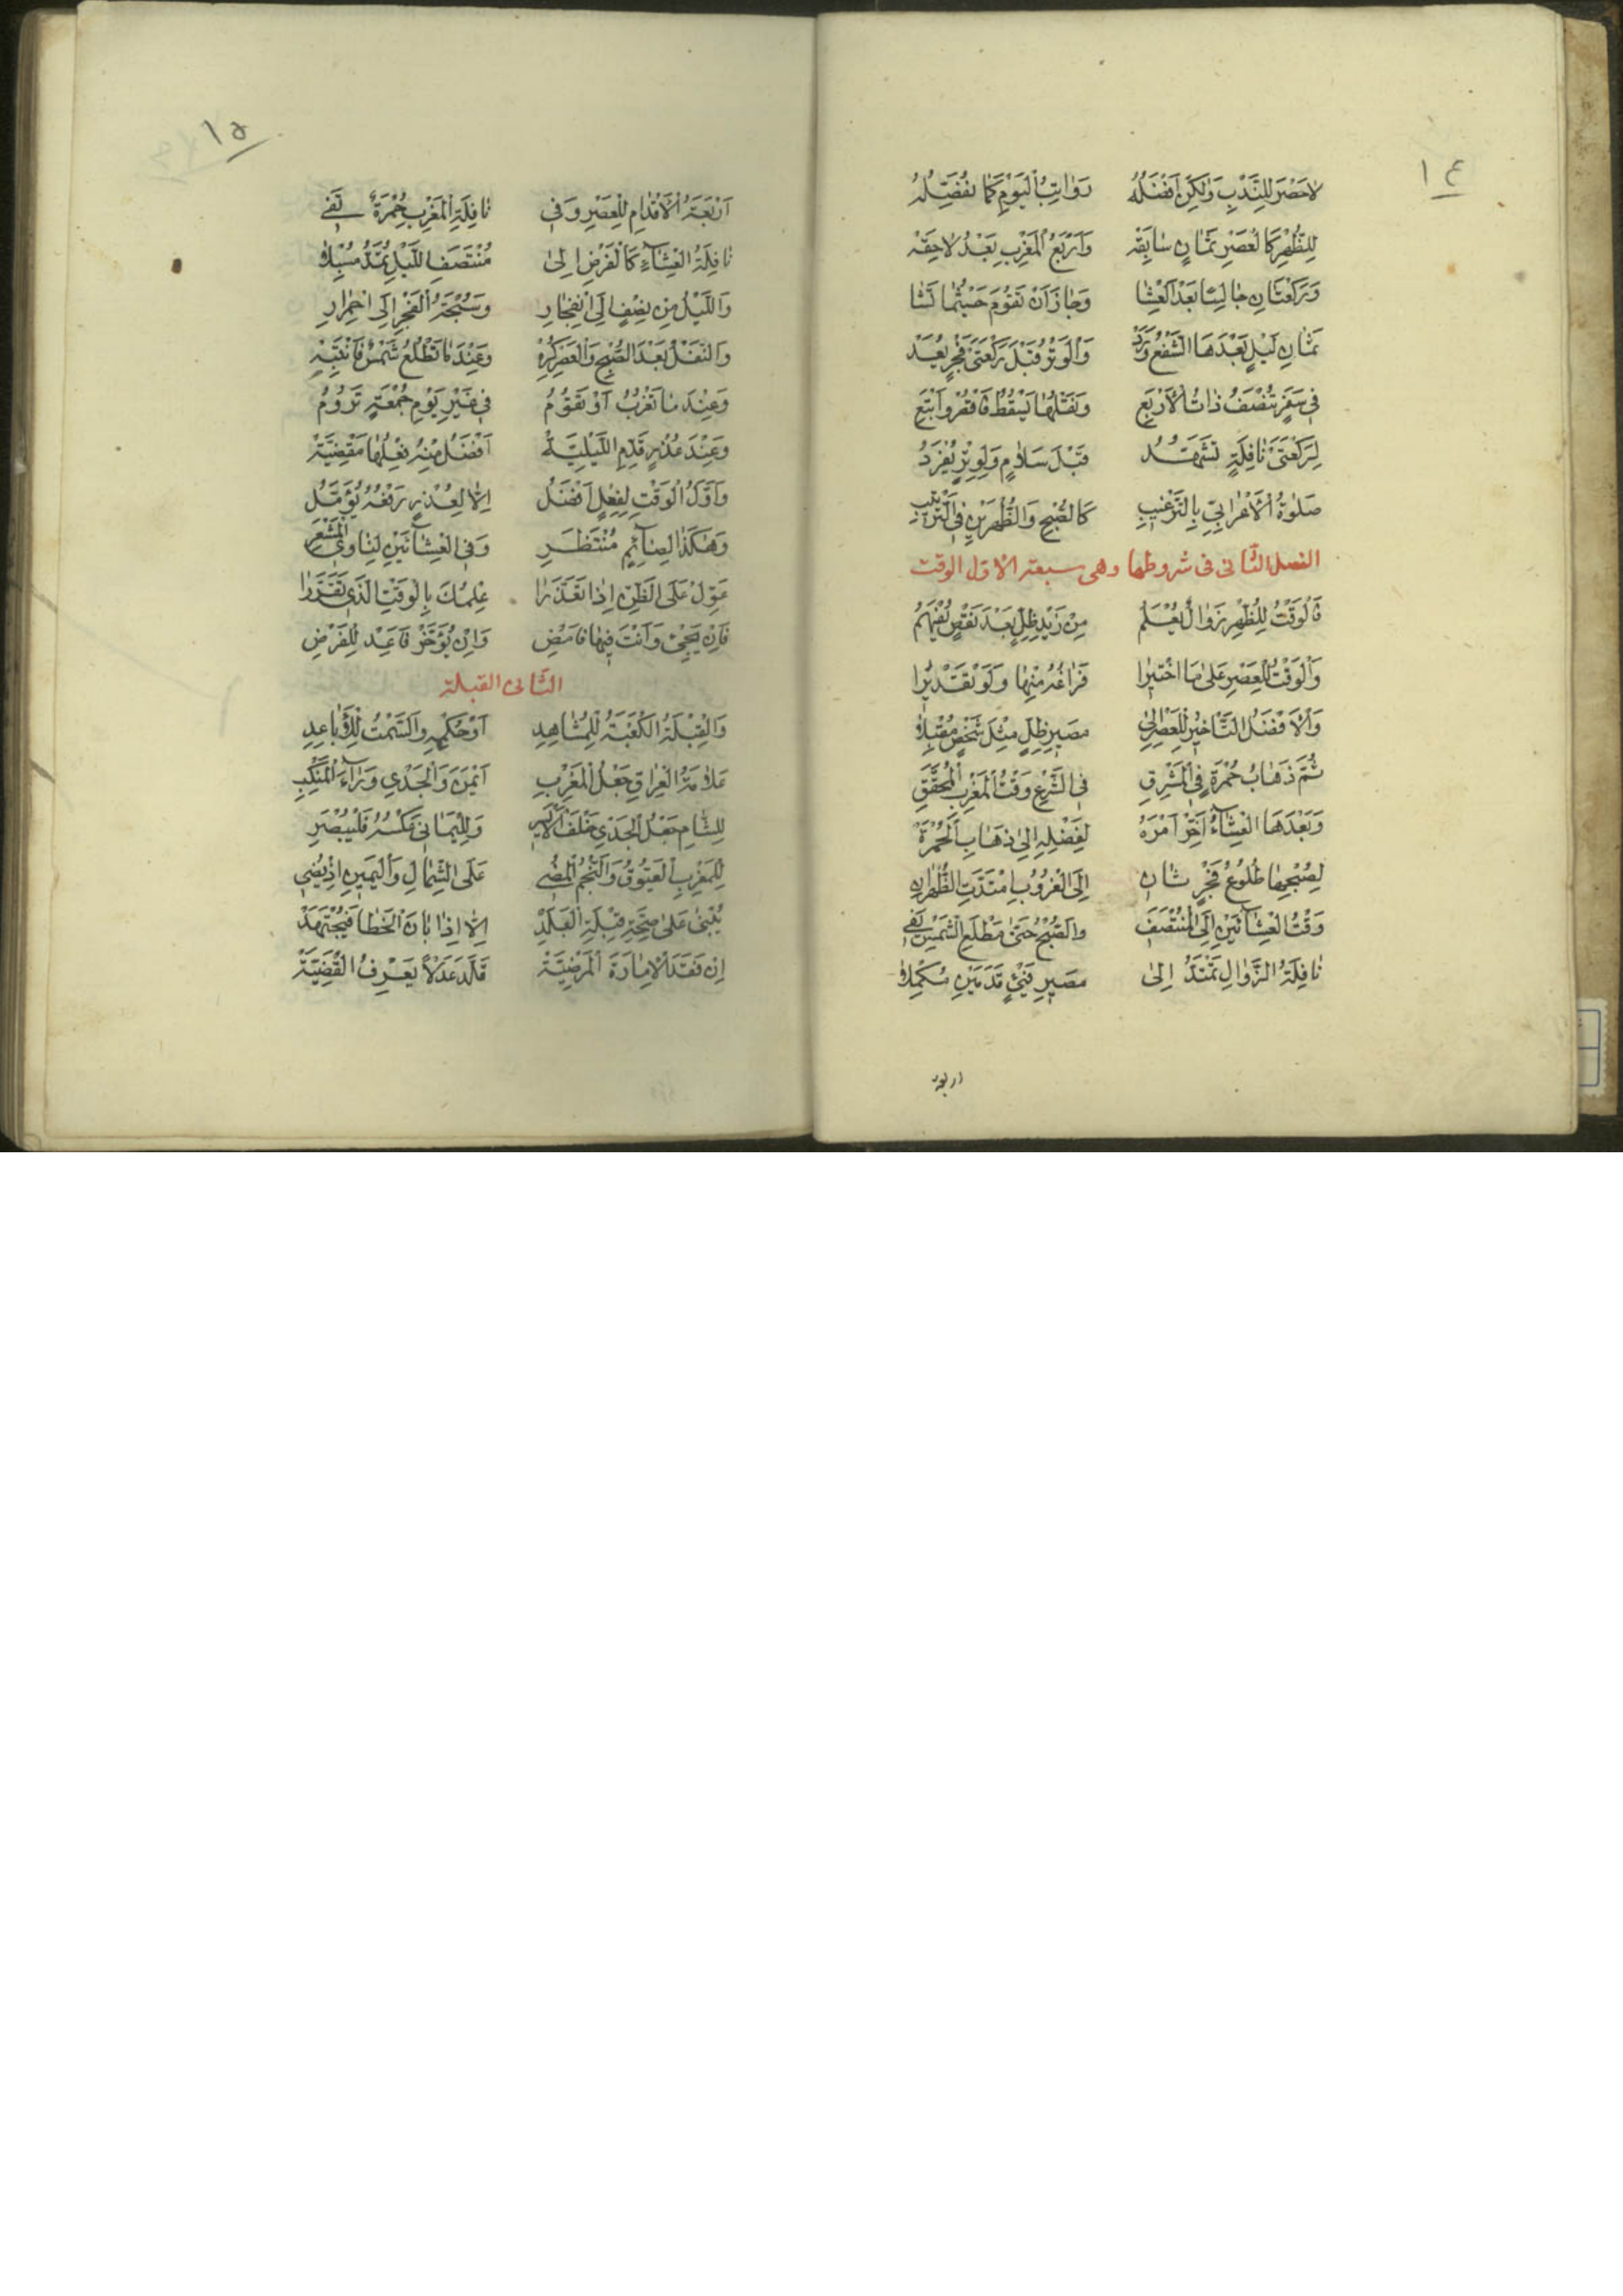 ١٤
لاحَصْرَ لِلنَّدْبِ وَلٰكِنْ اَفْضَلُهُ رَوٰاتِبُ الْيَوْمِ كَمٰا نُفَضِّلُهُ
لِلظُّهْرِ كَالْعَصْرِ ثَمٰانٍ سٰابِقَه وَاَرْبَعُ الْمَغْرِبِ بَعْدُ لاحِقَه
وَرَكْعَتٰانِ جٰالِسًا بَعْدَ الْعِشٰا وَجٰازَ اَنْ تَقُومَ حَيْثُمٰا تَشٰا
ثَمٰانِ لَيْلٍ بَعْدَهَا الشَّفْعُ وَرَدْ وَالْوَتْرُ قَبْلَ رَكْعَتَىْ فَجْرٍ يُعَدْ
فِى سَفَرٍ تُنْصَفُ ذٰاتُ الْاَرْبَعِ وَنَفْلُهٰا يَسْقُطُ فَاقْفُ وَاتْبَعِ
لِرَكْعَتَىْ نٰافِلَةٍ تَشَهُّدُ قَبْلَ سَلٰامٍ وَلِوِتْرٍ يُفْرَدُ
صَلٰوةُ الْاَعْرٰابِىِّ بِالتَّرْغِيبِ كَالصُّبْحِ وَالظُّهْرَيْنِ فِى التَّرْتِيبِ
الفصل الثّانى فى شروطها وهى سبعة الاوّل الوقت
فَالْوَقْتُ لِلظُّهْرِ زَوٰالٌ يُعْلَمُ مِنْ زَيْدِ ظِلٍّ بَعْدَ نَقْصٍ يُفْهَمُ
وَالْوَقْتُ لِلْعَصْرِ عَلٰى مَا اخْتِيرٰا فَرٰاغُهُ مِنْهٰا وَلَوْ تَقْدِيرٰا
وَالْاَفْضَلُ التَّاخِيرُ لِلْعَصْرِ اِلىٰ مَصِيرِ ظِلٍّ مِثْلَ شَخْصٍ مُقْبِلاٰ
ثُمَّ ذَهٰابُ حُمْرَةٍ فِى الْمَشْرِقِ فِى الشَّرْعِ وَقْتُ الْمَغْرِبِ الْمُحَقَّقِ
وَبَعْدَهَا الْعِشٰآءُ اَخِّرْ اَمْرَهُ لِفَضْلِهِ اِلىٰ ذَهٰابِ الْحُمْرَةْ
لِصُبْحِهٰا طُلُوعُ فَجْرٍ ثٰانِ اِلَى الْغُرُوبِ امْتَدَّتِ الظُّهْرٰانِ
وَقْتُ الْعِشٰآئَيْنِ اِلَى الْمُنْتَصَفِ وَالصُّبْحُ حَتّىٰ مَطْلَعِ الشَّمْسِ يَفِى
نٰافِلَةُ الزَّوٰالِ تَمْتَدُّ اِلىٰ مَصِيرِ فَيْئٍ قَدَمَيْنِ مُكْمِلاٰ
اربعة
١٥
اَرْبَعَةُ الْاَقْدٰامِ لِلْعَصْرِ وَفِى نٰافِلَةِ الْمَغْرِبِ حُمْرَةٌ تَفِى
نٰافِلَةُ الْعِشٰآءِ كَالْفَرْضِ اِلىٰ مُنْتَصَفِ اللَّيْلِ تُمَدُّ مُسْبَلاٰ
وَاللَّيْلُ مِنْ نِصْفٍ اِلَى انْفِجٰارِ وَسُبْحَةُ الْفَجْرِ اِلَى احْمِرٰارِ
وَالنَّفْلُ بَعْدَ الصُّبْحِ وَالْعَصْرِ كُرِهْ وَعِنْدَ مٰا تَطْلُعُ شَمْسٌ فَانْتَبِهْ
وَعِنْدَ مٰا تَغْرُبُ اَوْ تَقُومُ فِى غَيْرِ يَوْمِ جُمْعَةٍ تَرُومُ
وَعِنْدَ عُذْرٍ قَدِّمِ اللَّيْلِيَّةْ اَفْضَلُ مِنْهُ فِعْلُهٰا مَقْضِيَّةْ
وَاَوَّلُ الْوَقْتِ لِفِعْلٍ اَفْضَلُ اِلاّٰ لِعُذْرٍ رَفْعُهُ يُؤَمَّلُ
وَهٰكَذَا لِصٰائِمٍ مُنْتَظَرِ وَفِى الْعِشٰآئَيْنِ لِنٰاوِى الْمَشْعَرِ
عَوِّلْ عَلَى الظَّنِّ اِذٰا تَعَذَّرٰا عِلْمُكَ بِالْوَقْتِ الَّذِى تَقَرَّرٰا
فَاِنْ يَجِئْ وَاَنْتَ فِيهٰا فَامْضِ وَاِنْ يُؤَخَّرْ فَاَعِدْ لِلْفَرْضِ
الثّانى القبلة
وَالْقِبْلَةُ الْكَعْبَةُ لِلْمُشٰاهِدِ اَوْ حُكْمِهِ وَالسَّمْتُ لِلْاَبٰاعِدِ
عَلاٰمَةُ الْعِرٰاقِ جَعْلُ الْمَغْرِبِ اَيْمَنَ وَالْجَدْىِ وَرٰآءَ الْمَنْكِبِ
لِلشّٰامِ جَعْلُ الْجَدْىِ خَلْفَ الْاَيْسَرِ وَلِلْيَمٰانِى عَكْسُهُ فَلْيُبْصَرِ
لِلْمَغْرِبِ الْعَيُّوقُ وَالنَّجْمُ الْمُضِى عَلَى الشِّمٰالِ وَالْيَمِينِ اِذْ يُضِى
يُبْنىٰ عَلىٰ صِحَّةِ قِبْلَةِ الْبَلَدْ اِلاّٰ اِذٰا بٰانَ الْخَطٰا فَيُجْتَهَدْ
اِنْ فَقَدَ الْاِمٰارَةَ الْمَرْضِيَّةْ قَلَّدَ عَدْلاً يَعْرِفُ الْقَضِيَّةْ